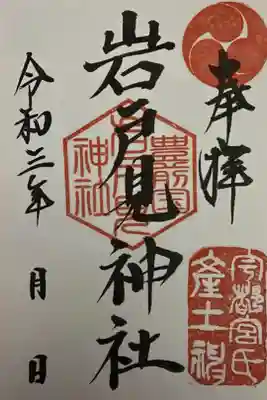 奉拝
宇都宮氏
産土神
岩戸見神社
豊前国
神社
令和三年 月 日